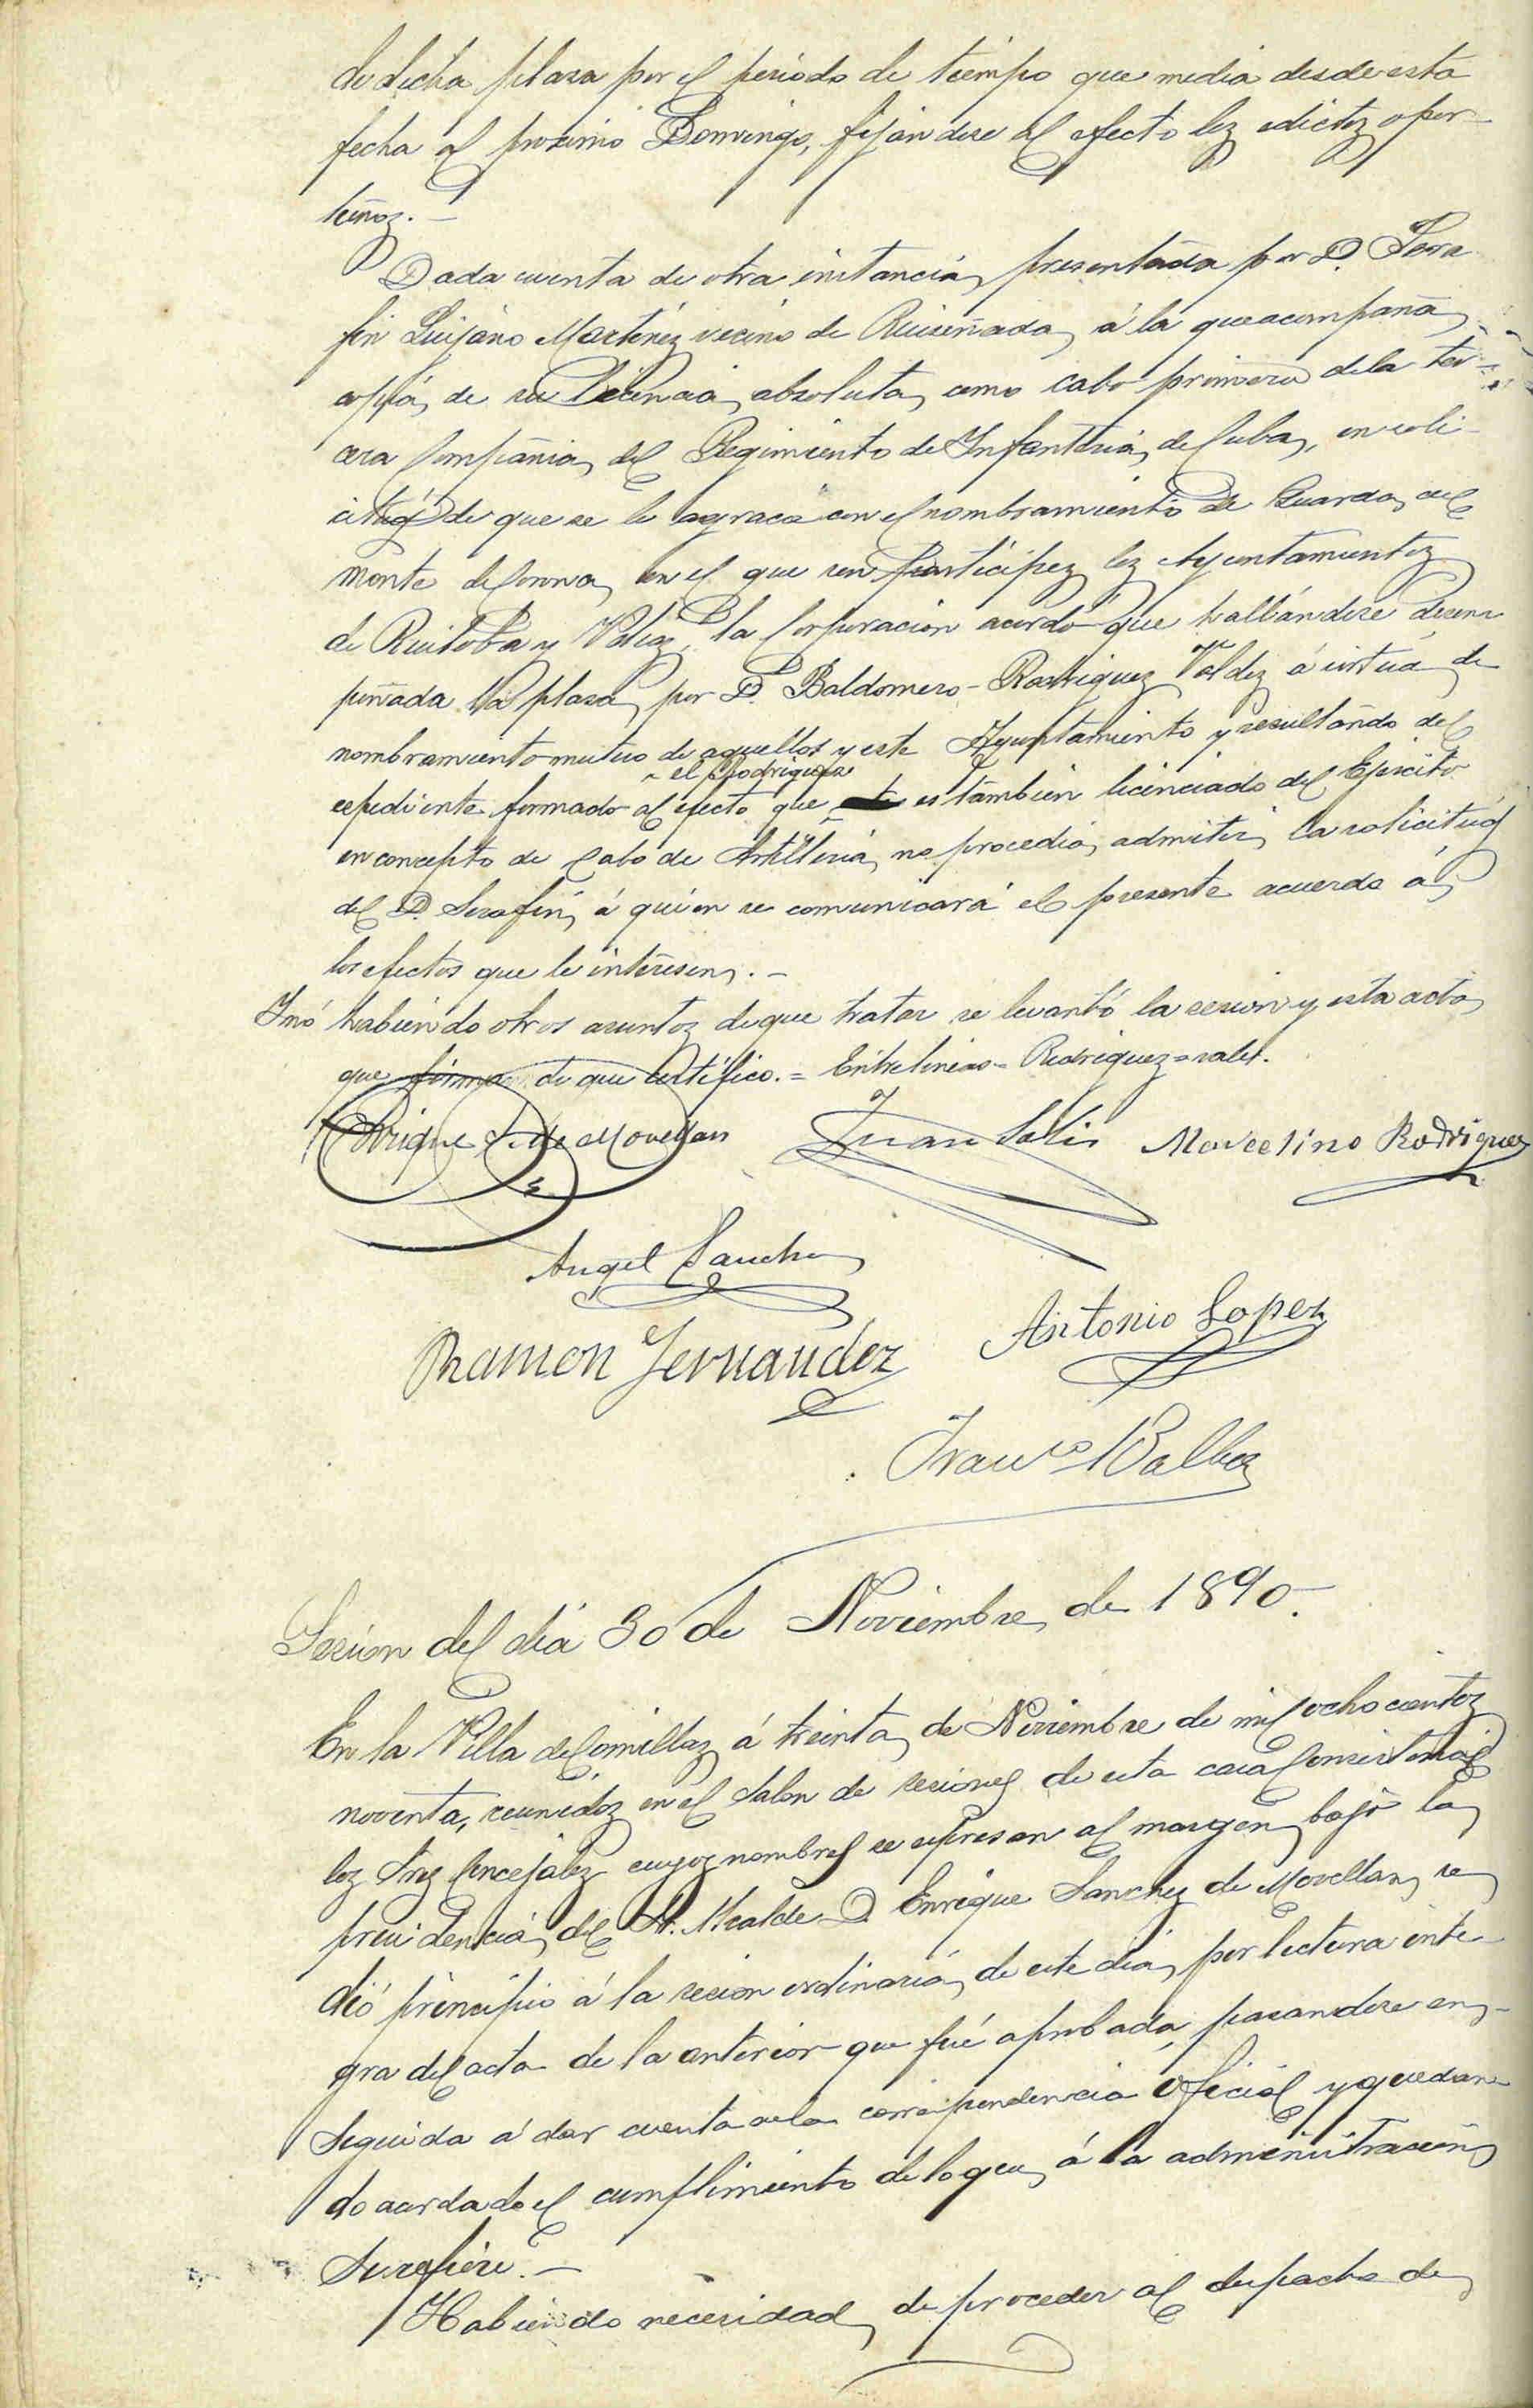 de dicha plaza por el periodo de tiempo que media desde esta
fecha al proximo Domingo, fijandose al efecto los edictos opor-
tunos.-
Dada cuenta de otra instancia presentada por D. Sera
fin Quijano Martinez vecino de Ruiseñada, á la que acompaña
copia de su licencia absoluta, como cabo primero de la ter-
cera Compañia del Regimiento de Infanteria de Cuba, en soli-
citud de que se le agracie con el nombramiento de Guarda del
monte de Corona, en el que son participes los Ayuntamientos
de Ruiloba y Valdaliga, la Corporacion acordó que hallandose desem
peñada la plaza, por D. Baldomero Rodriguez Valdez á virtud de
nombramiento mutuo de aquellos y este Ayuntamiento y resultando del
el Rodriguez
espediente formado al efecto que es tambien licenciado del Ejercito
en concepto de Cabo de Artilleria, no procedia admitir la solicitud
del D. Serafin, á quien se comunicará el presente acuerdo á
los efectos que le interesen.-
Y no habiendo otros asuntos de que tratar se levantó la sesion y esta acta
que firman de que certifico.= Entrelineas= Rodriguez=vale.
Enrique S. de Movellan Juan Solis Marcelino Rodriguez
Angel Sanchez
Antonio Lopez
Ramon Fernandez
Franco Balbas
Sesion del dia 30 de Noviembre de 1890.-
En la Villa de Comillas á treinta de Noviembre de mil ochocientos
noventa, reunidos en el Salon de sesiones de esta casa Consistorial
los Sres Concejales cuyos nombres se espresan al margen bajo la
presidencia del Sr. Alcalde D. Enrique Sanchez de Movellan, se
dió principio á la sesion ordinaria de este dia, por lectura inte-
gra del acta de la anterior que fué aprobada, pasandose en-
seguida á dar cuenta de la correspondencia oficial y quedan-
do acordado el cumplimiento de lo que á la administracion
se refiere.-
Habiendo necesidad de proceder al despacho de